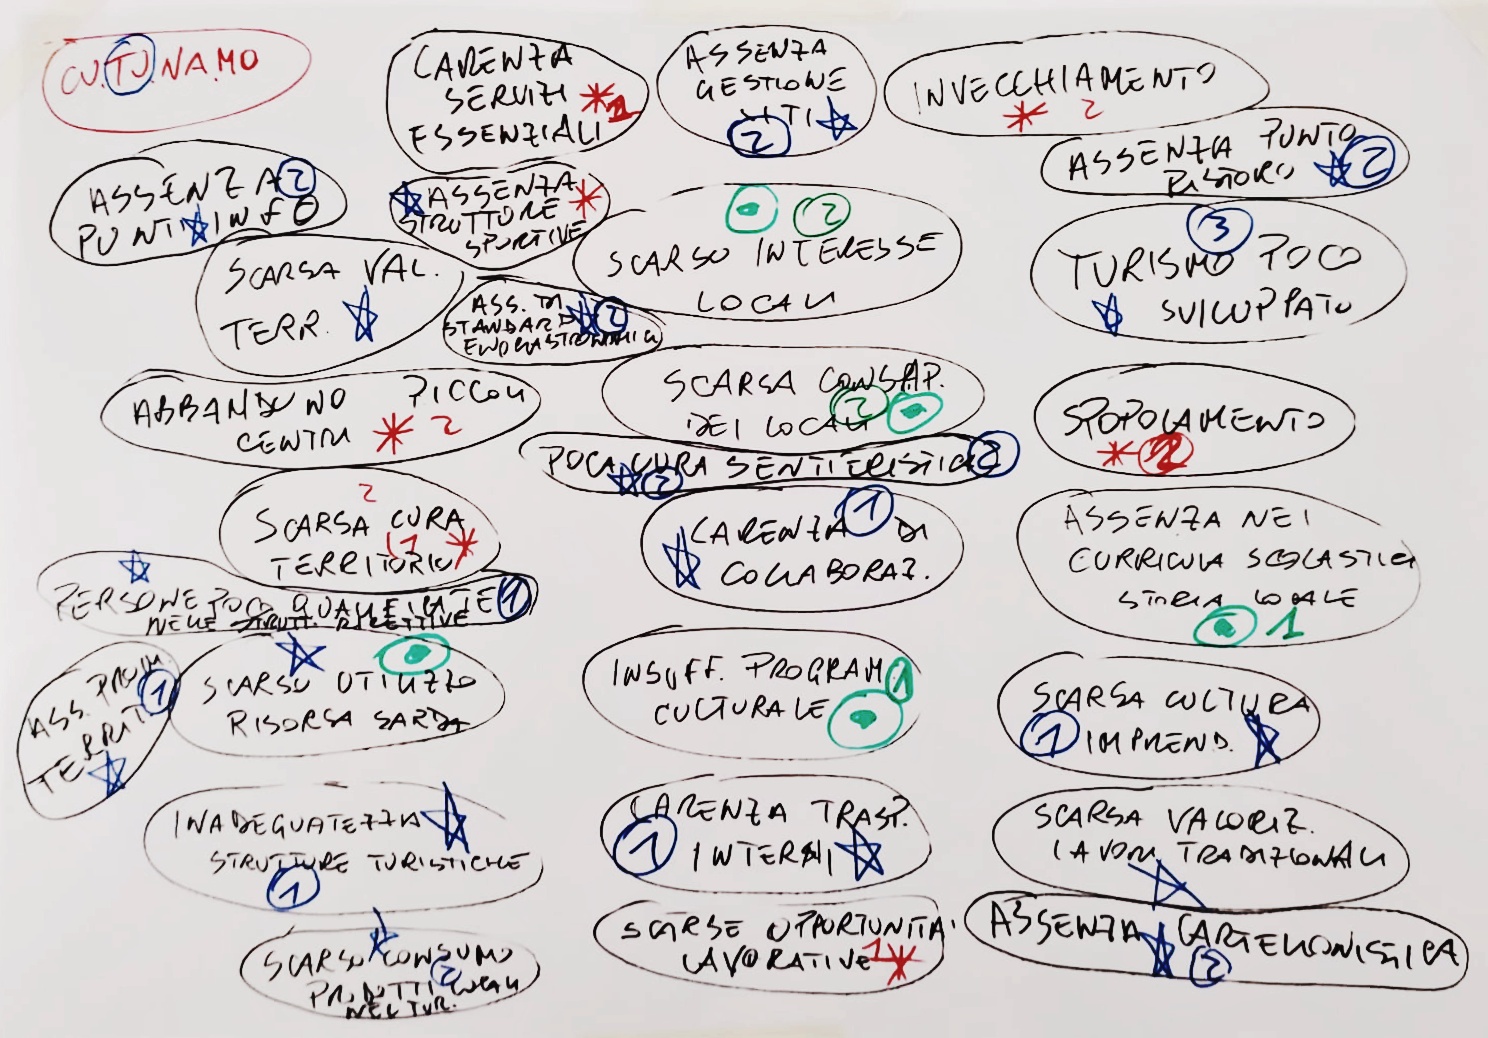 CU.TU.NA.MO
CARENZA
SERVIZI
ESSENZIALI
1
ASSENZA
GESTIONE
SITI
2
INVECCHIAMENTO
2
ASSENZA PUNTO
RISTORO
2
ASSENZA
2
PUNTI INFO
ASSENZA
STRUTTURE
SPORTIVE
2
SCARSO INTERESSE
LOCALI
3
TURISMO POCO
SVILUPPATO
SCARSA VAL.
TERR.
ASS. DI
STANDARD
2
ENOGASTRONOMICI
SCARSA CONSAP.
DEI LOCALI
2
ABBANDONO PICCOLI
CENTRI
2
SPOPOLAMENTO
2
POCA CURA SENTIERISTICA
2
2
2
SCARSA CURA
1
TERRITORIO
1
CARENZA DI
COLLABORAZ.
ASSENZA NEI
CURRICULA SCOLASTICI
STORIA LOCALE
1
PERSONE POCO QUALIFICATE
1
NELLE STRUTT. RICETTIVE
ASS.
1
SCARSO UTILIZZO
RISORSA SARDA
INSUFF. PROGRAM
1
CULTURALE
SCARSA CULTURA
1
IMPREND.
INADEGUATEZZA
STRUTTURE TURISTICHE
1
CARENZA TRASP.
1
INTERNI
SCARSA VALORIZ.
LAVORI TRADIZIONALI
SCARSO CONSUMO
2
PRODOTTI LOCALI
NEL TUR.
SCARSE OPPORTUNITA'
LAVORATIVE
1
ASSENZA CARTELLONISTICA
2